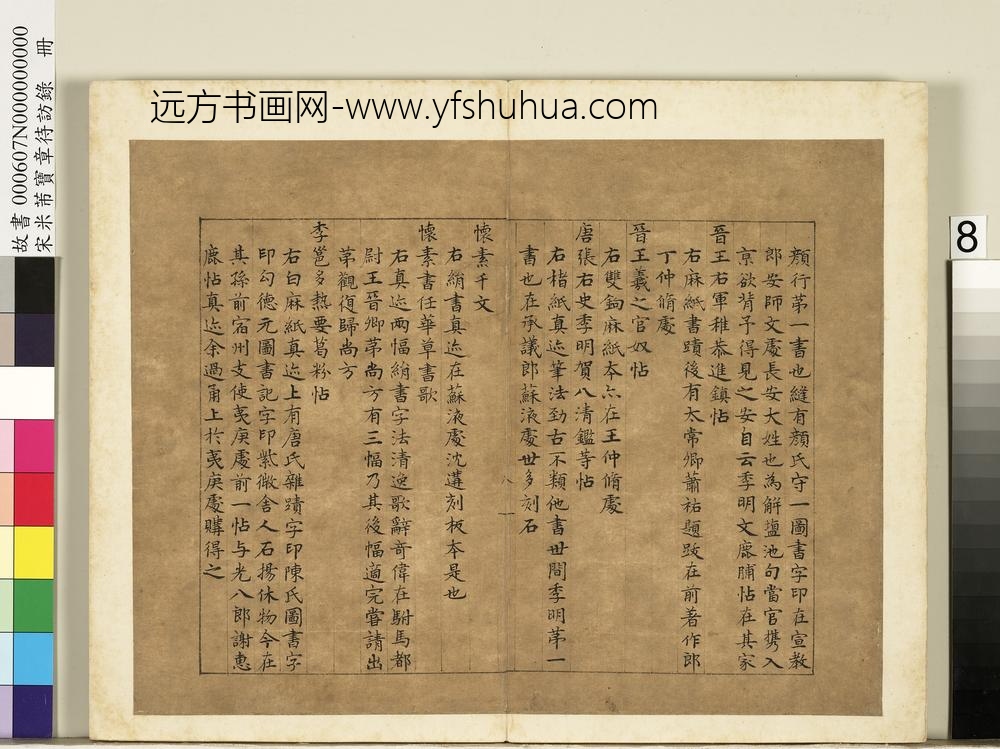 远方书画网-www.yfshuhua.com
故書 000607N000000000
宋米芾寶章待訪錄 冊
8
顏行苐一書也縫有顏氏守一圖書字印在宣教
郎安師文處長安大姓也為解塩池句當官攜入
京欲背予得見之安自云季明文鹿脯帖在其家
晉王右軍稚恭進鎮帖
右麻紙書蹟後有太常卿蕭祐題跋在前著作郎
丁仲脩處
晉王羲之官奴帖
右雙鉤麻紙本亦在王仲脩處
唐張右史季明賀八清鑑等帖
右楮紙真迹筆法勁古不類他書世間季明苐一
書也在承議郎蘇液處世多刻石
八
懷素千文
右絹書真迹在蘇液處沈遘刻板本是也
懷素書任華草書歌
右真迹兩幅絹書字法清逸歌辭奇偉在駙馬都
尉王晉卿苐尚方有三幅乃其後幅適完嘗請出
苐觀復歸尚方
李邕多熱要葛粉帖
右白麻紙真迹上有唐氏雜蹟字印陳氏圖書字
印勾德元圖書記字印紫微舍人石揚休物今在
其孫前宿州支使夷庚處前一帖与光八郎謝惠
鹿帖真迹余過甬上於夷庚處購得之